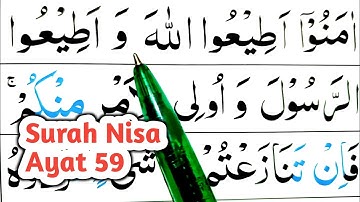 اٰمَنُوْٓا اَطِيْعُوا اللّٰهَ وَ اَطِيْعُوا
الرَّسُوْلَ وَ اُولِى مْرِ مِنْكُمْ ۚ
Surah Nisa
Ayat 59
فَاِنْ تَنَازَعْتُمْ